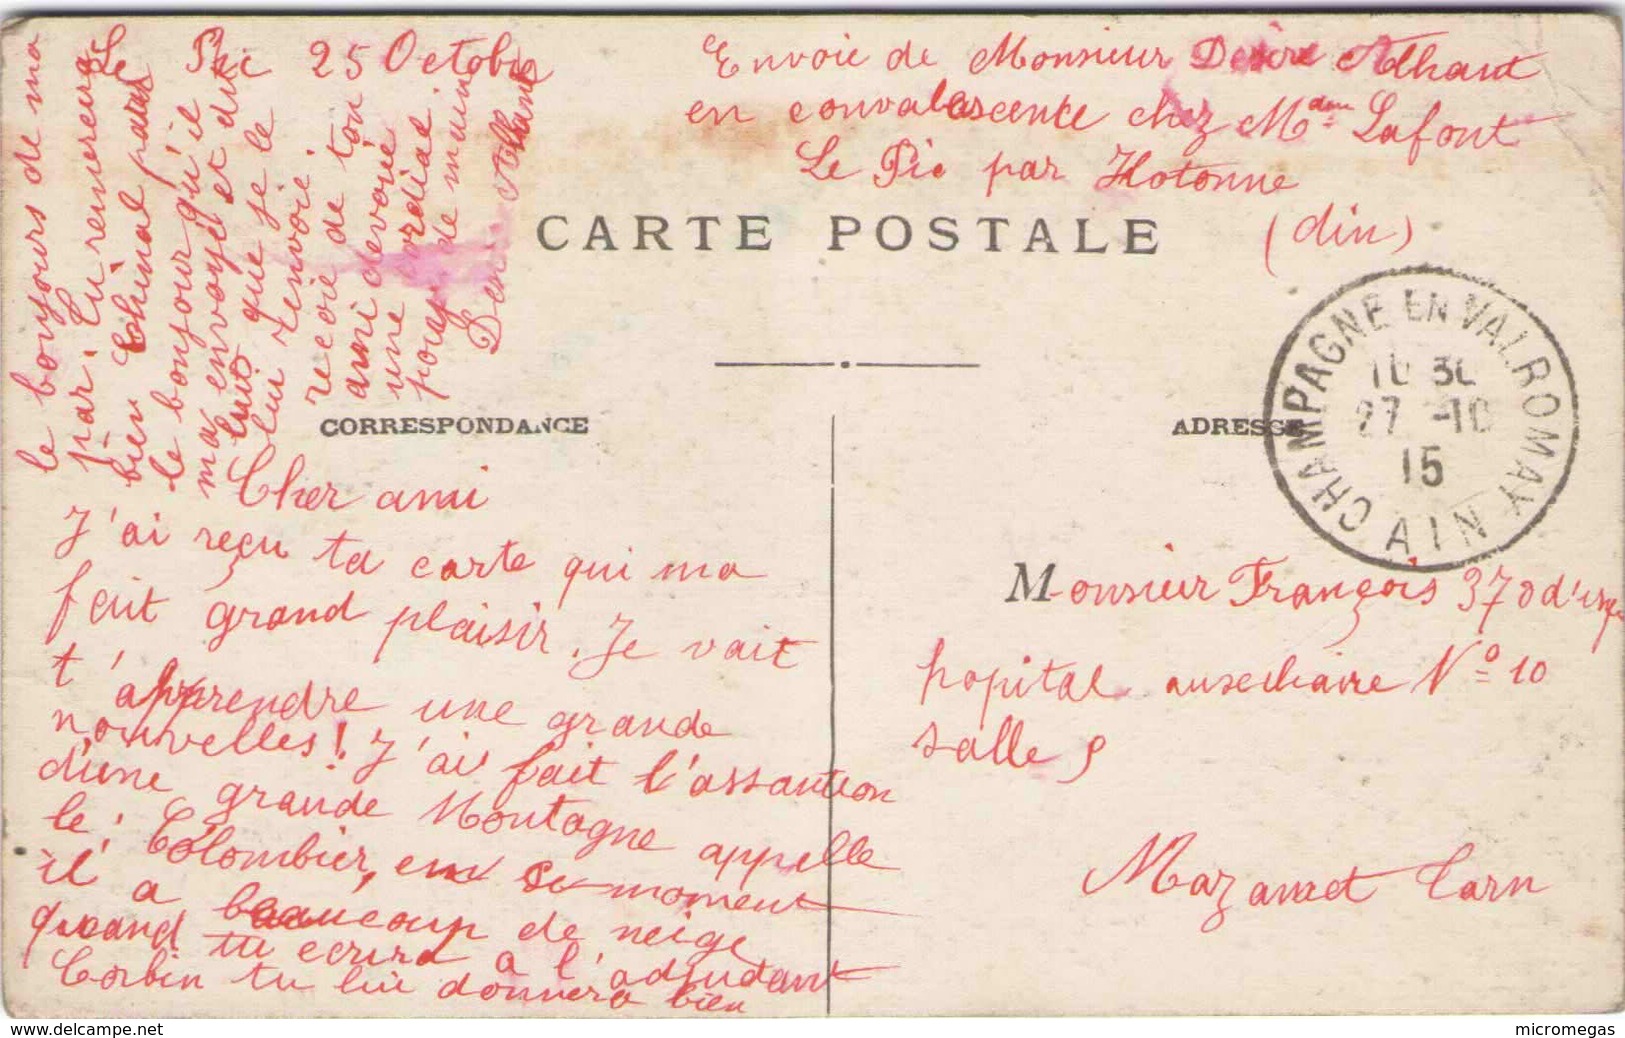 Le Pic 25 Octobre
Envoie de Monsieur Desire Alhant
en convalescence chez Mdme Lafont
Le Pic par Hotonne
(din)
CARTE POSTALE
CORRESPONDANCE
ADRESSE
CHAMPAGNE EN VALROMAY
27 -10
15
AIN
Cher ami
J'ai reçu ta carte qui ma
fait grand plaisir. Je vait
t'apprendre une grande
nouvelles! J'ai fait l'assantion
d'une grande Montagne appelle
le: Colombier, em ce moment
il a beaucoup de neige
quand tu ecrira a l'adjudant
Corbin tu lui donnera bien
le bonjours de ma
par. Tu remerciera
bien Chinal pour
le bonjour qu'il
ma envoyé et dit
luit que je le
lui renvoie.
recoie de ton
ami devoué
une cordiale
poigné de main
Alhant
Monsieur François 370 d'inf
hopital auxechiaire No 10
Salle 9
Mazamet Tarn
www.delcampe.net
micromegas